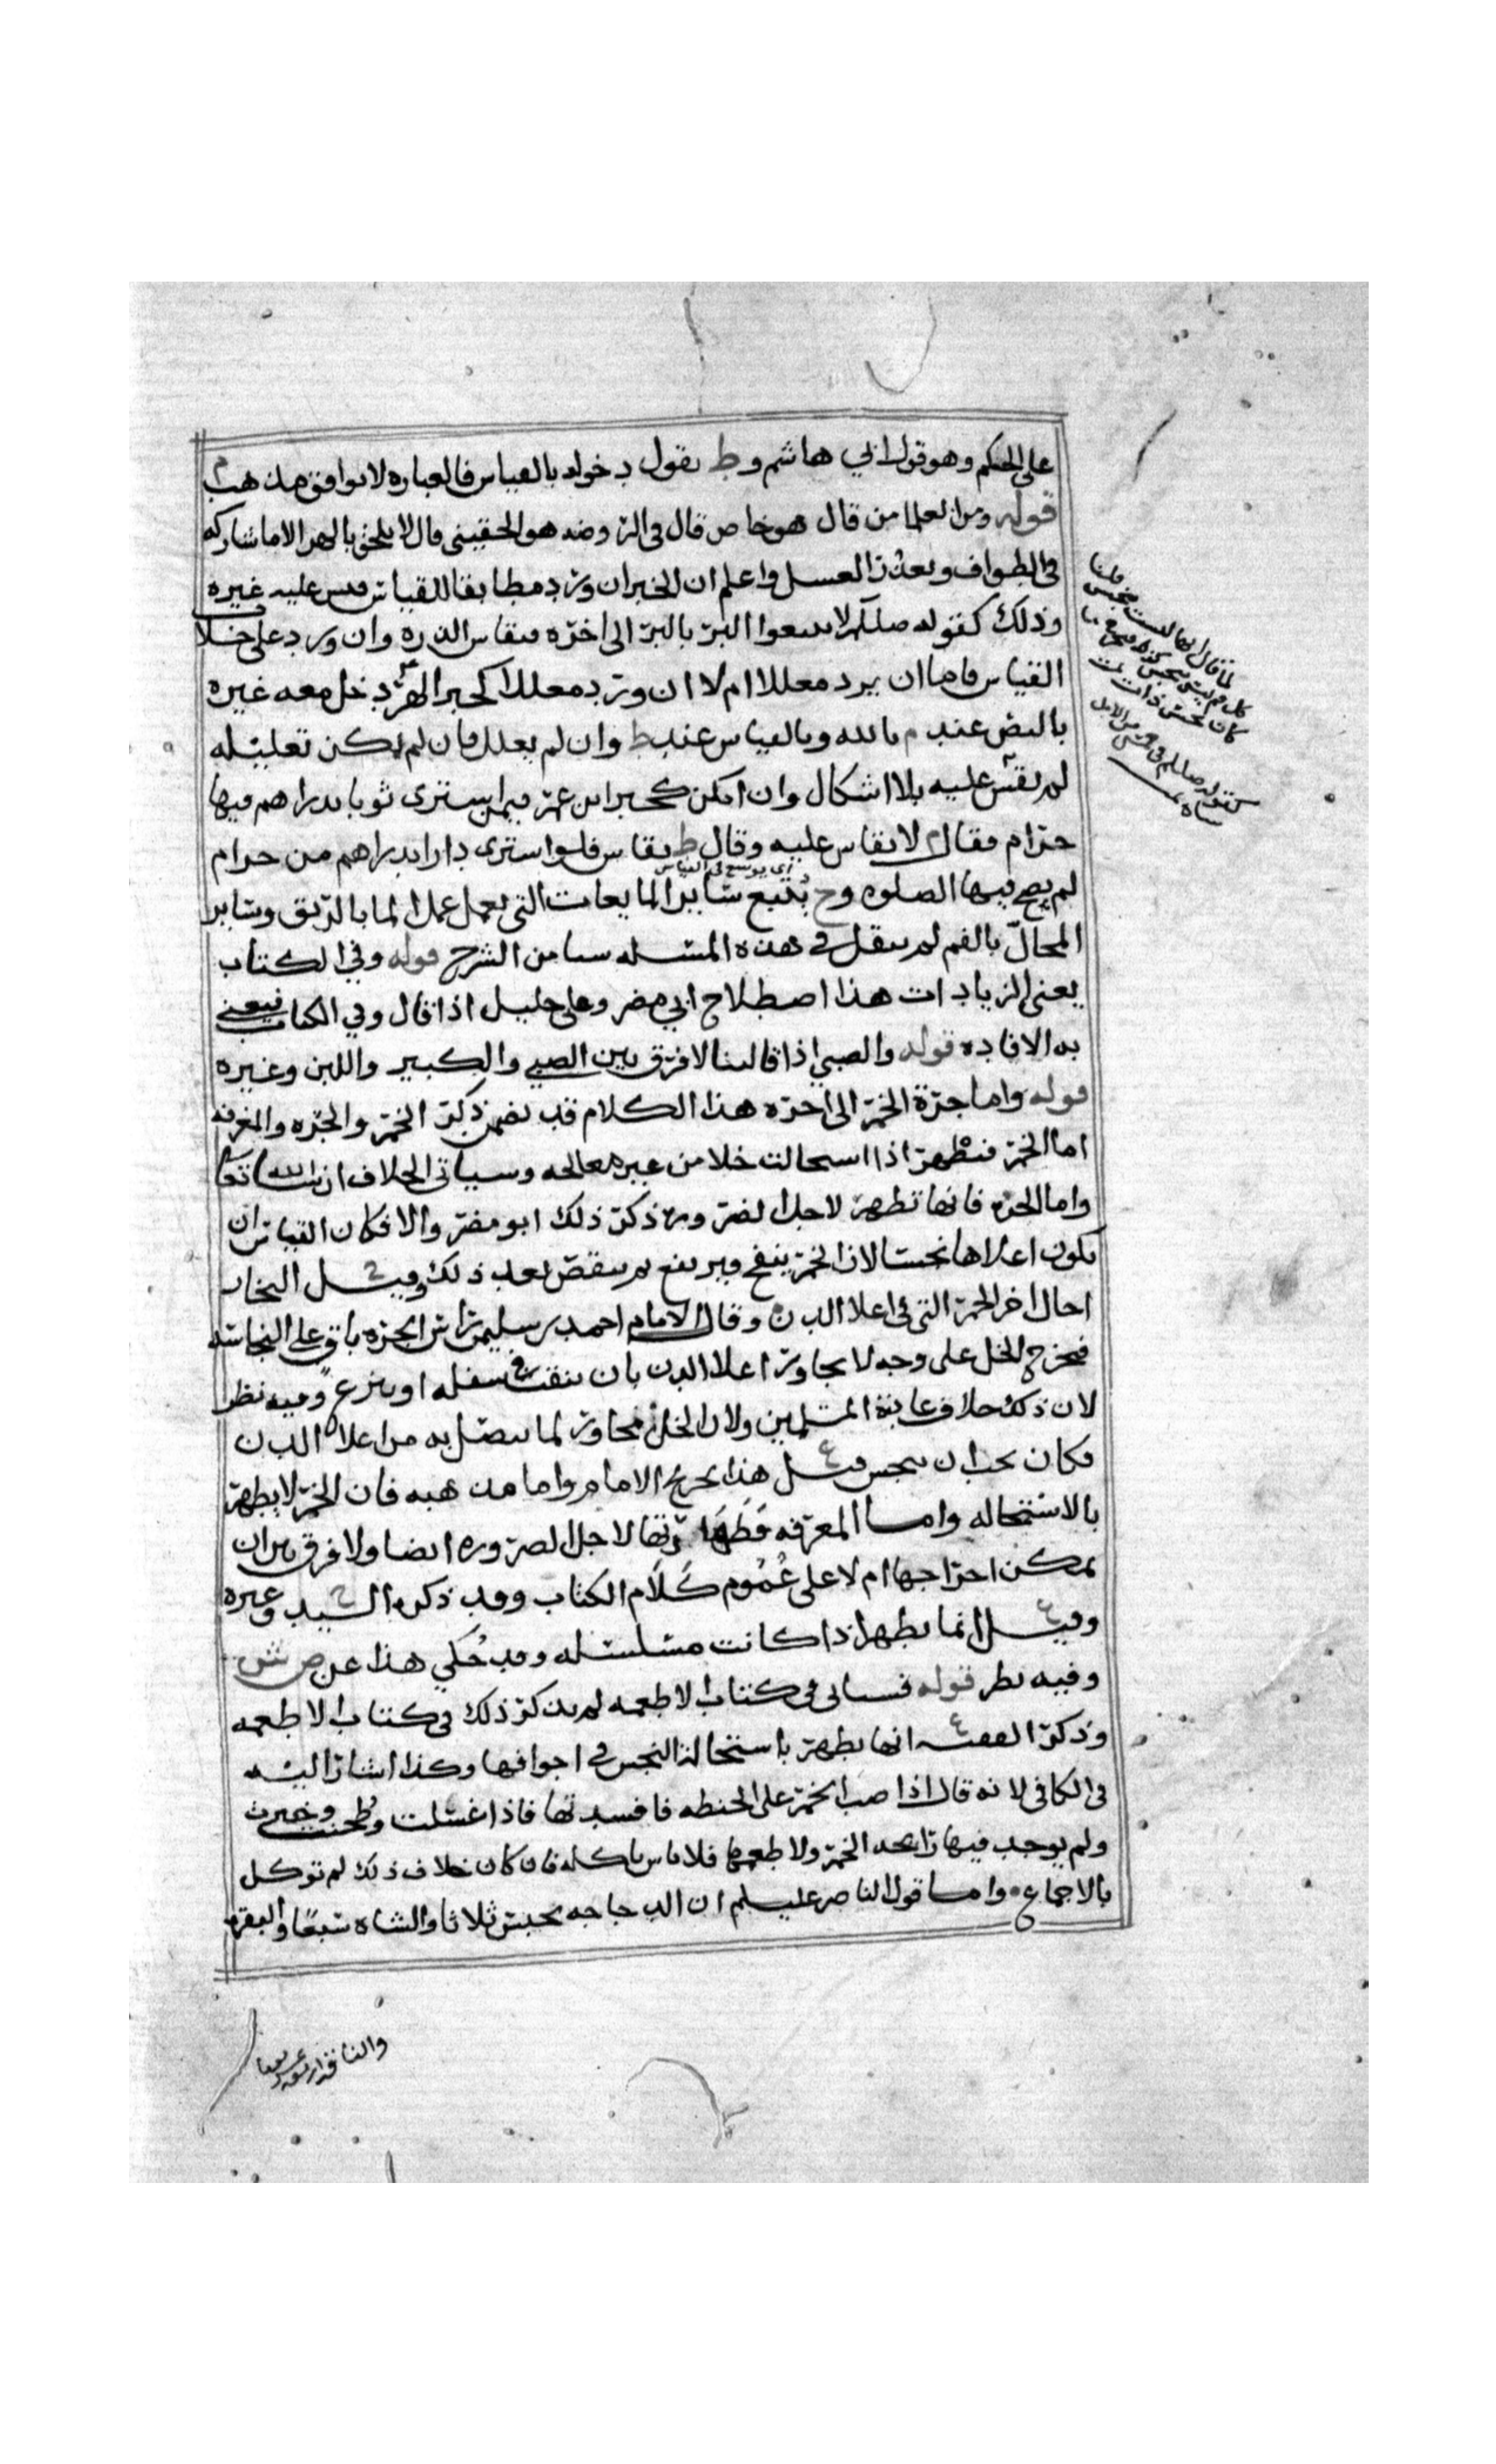 على الحكم وهو قول ابي هاشم وط يقول دخوله بالقياس فالعباره لا توافق مذهب م
قوله ومن العلما من قال هو خاص قال في الروضه هو الحقيني قال لا يلحق بالهر الا ما شاركه
في الطواف وتعذر الغسل واعلم ان الخبر ان ورد مطابقا للقياس قيس عليه غيره
وذلك كقوله صللم لا تبيعوا البر بالبر الى اخره فيقاس الذره وان ورد على خلاف
القياس فاما ان يرد معللا ام لا ان ورد معللا كخبر الهر دخل معه غيره
بالنص عند م بالله وبالقياس عند ط وان لم يعلل فان لم يمكن تعليله
لم يقس عليه بلا اشكال وان امكن كخبر ابن عمر فيمن يشتري ثوبا بدراهم فيها
حرام فقال م لا يقاس عليه وقال ط يقاس فلو اشترى دارا بدراهم من حرام
اي يوسع في القياس
لم يصح فيها الصلوه وح يتبع سائر المايعات التي يعمل عمل الما بالريق وسائر
المحال بالفم لم ينقل في هذه المسله شيا من الشرح قوله وفي الكتاب
يعني الزيادات هذا اصطلاح ابي مضر وعلي خليل اذا قال وفي الكتاب فيعني
به الافاده قوله والصبي اذا قا لبنا لا فرق بين الصبي والكبير واللبن وغيره
قوله واما جرة الخمر الى اخره هذا الكلام قد تضمن ذكر الخمر والجره والمغرفه
اما الخمر فتطهر اذا استحالت خلا من غير معالجه وسياتي الخلاف ان شا الله تعا
واما الجره فانها تطهر لاجل الضروره ذكر ذلك ابو مضر والا فكان القياس ان
يكون اعلاها نجسا لان الخمر ينفخ ويرتفع ثم ينقص بعد ذلك وقيل الخار
احال اخر الخمر التي في اعلا الدن وقال الامام احمد بن سليمن راس الجره باق على النجاسه
فيخرج الخل على وجه لا يجاوز اعلا الدن بان ينقب سفله او ينزع وفيه نظر
لان ذلك خلاف عادة المسلمين ولان الخل مجاوز لما يتصل به من اعلا الدن
فكان يجب ان ينجس قيل ع هذا تخريج الامام واما مذهبه فان الخمر لا يطهر
بالاستحاله واما المغرفه فطهارتها لاجل الضروره ايضا ولا فرق بين ان
يمكن اخراجها ام لا على عموم كلام الكتاب وقد ذكره السيد ح وغيره
وقيل ع انما يطهر اذا كانت مسلسله وقد حكي هذا عن ص ش
وفيه نظر قوله فسياتي في كتاب الاطعمه لم يذكر ذلك في كتاب الاطعمه
وذكر الفقيه ع انها يطهر باستحالة النجس في اجوافها وكذا اشار اليه
في الكافي لانه قال اذا صب الخمر على الحنطه فافسدتها فاذا غسلت وطحنت وخبزت
ولم يوجد فيها رائحه الخمر ولا طعمها فلا باس باكله فان كان خلاف ذلك لم توكل
بالاجماع واما قول الناصر عليلم ان الدجاجه تحبس ثلاثا والشاه سبعا والبقره
والناقه اربعه عشر يوما